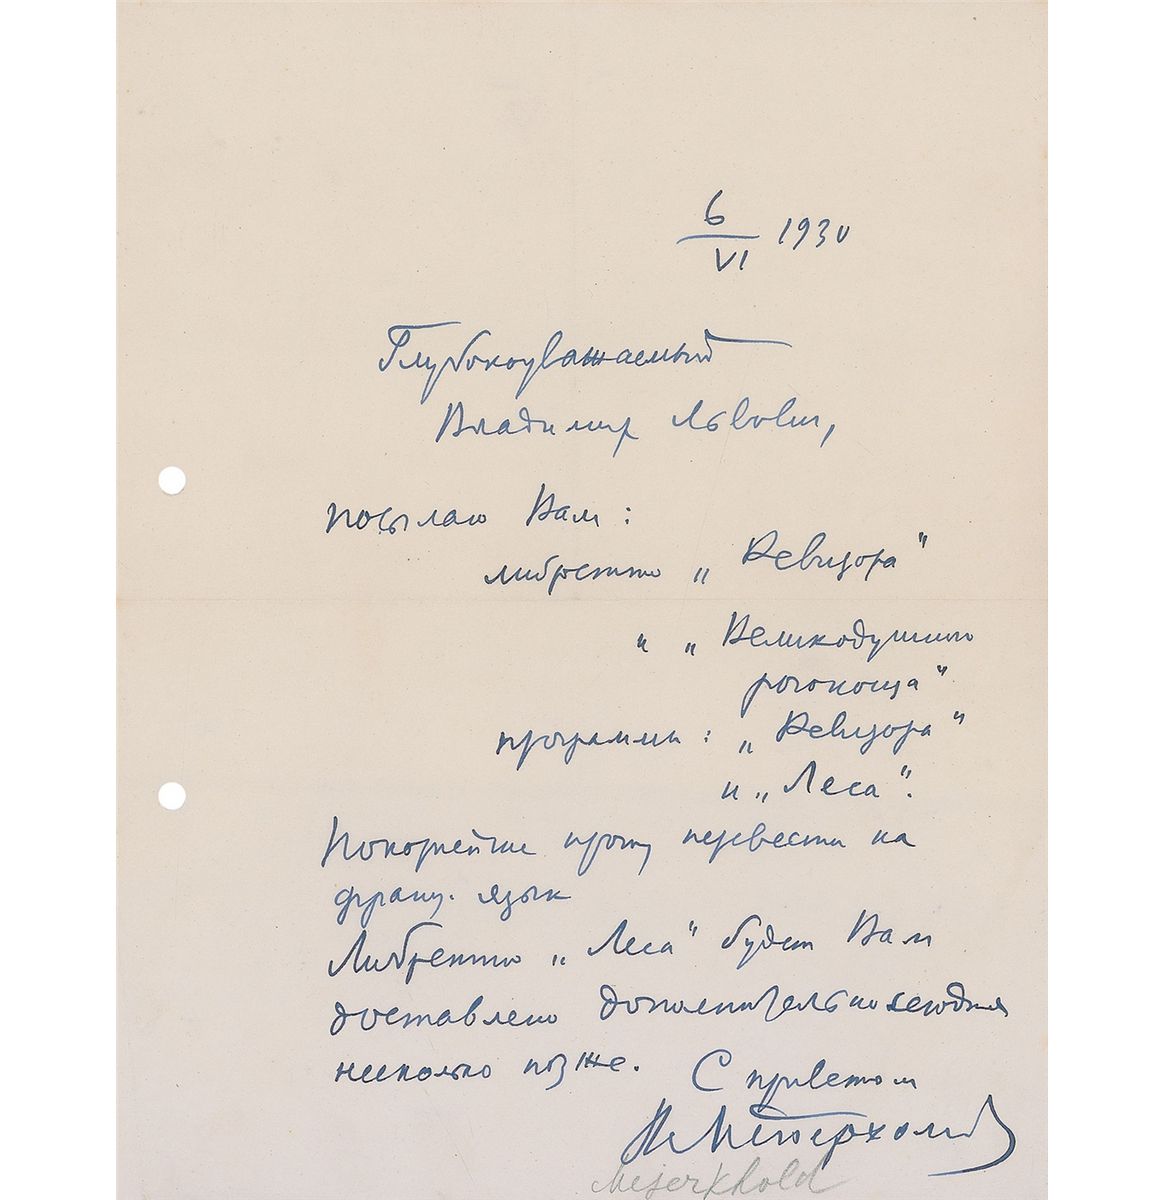 6
VI 1930
Глубокоуважаемый
Владимир Львович,
посылаю Вам:
либретто „Ревизора"
и „Великодушного
рогоносца"
программы: „Ревизора"
и „Леса".
Покорнейше прошу перевести на
франц. язык
Либретто „Леса" будет Вам
доставлено дополнительно сегодня
несколько позже.
С приветом
В. Мейерхольд
Mejerkhold